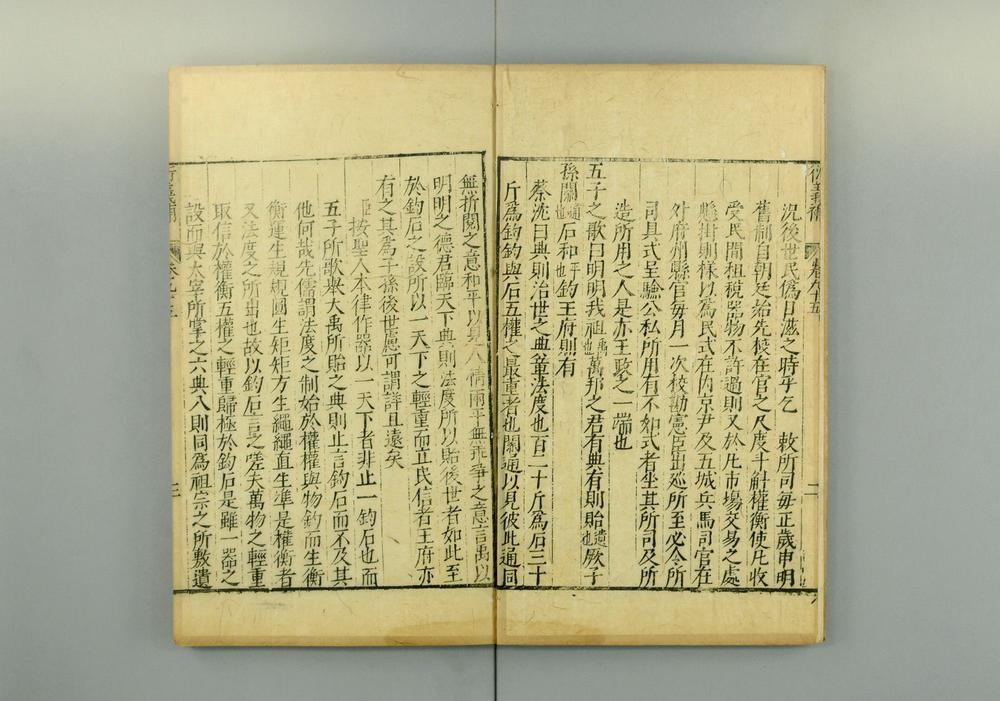 況後世民僞日滋之時乎乞　敕所司每正歲申明
舊制自朝廷始先校在官之尺度斗斛權衡使凡收
受民間租稅器物不許過則又於凡市場交易之處
懸掛則樣以爲民式在內京尹及五城兵馬司官在
外府州縣官每月一次校勘憲臣出巡所至必令所
司具式呈驗公私所用有不如式者坐其所司及所
造所用之人是亦王政之一端也
五子之歌曰明明我祖禹也萬邦之君有典有則貽遺也厥子
孫關通也石和平也鈞王府則有
蔡沈曰典則治世之典章法度也百二十斤爲石三十
斤爲鈞鈞與石五權之最重者也關通以見彼此通同
無折閱之意和平以見人情兩平無乖爭之意言禹以
明明之德君臨天下典則法度所以貽後世者如此至
於鈞石之設所以一天下之輕重而立民信者王府亦
有之其爲子孫後世慮可謂詳且遠矣
臣按聖人本律作器以一天下者非止一鈞石也而
五子所歌舉大禹所貽之典則止言鈞石而不及其
他何哉先儒謂法度之制始於權權與物鈞而生衡
衡運生規規圓生矩矩方生繩繩直生準是權衡者
又法度之所出也故以鈞石言之嗟夫萬物之輕重
取信於權衡五權之輕重歸極於鈞石是雖一器之
設而與太宰所掌之六典八則同爲祖宗之所敷遺